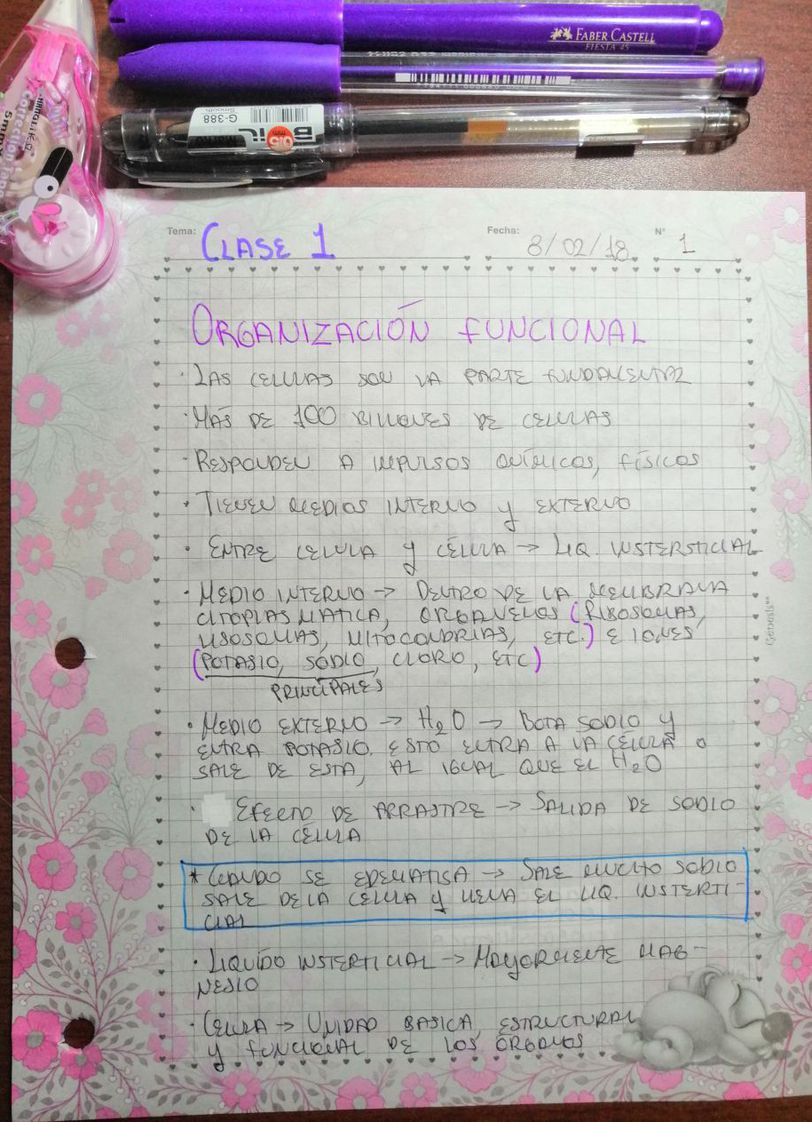 FABER CASTELL
FIESTA 45
G-388
Smooth
5mm
Correction Tape
Tema: CLASE 1 Fecha: 8/02/18 N° 1
ORGANIZACIÓN FUNCIONAL
· LAS CELULAS SON LA PARTE FUNDAMENTAL
· MÁS DE 100 BILLONES DE CELULAS
· RESPONDEN A IMPULSOS QUÍMICOS, FÍSICOS
· TIENEN MEDIOS INTERNO Y EXTERNO
· ENTRE CELULA Y CÉLULA → LIQ. INSTERSTICIAL
· MEDIO INTERNO → DENTRO DE LA MEMBRANA
CITOPLASMATICA, ORGANELOS (RIBOSOMAS,
LISOSOMAS, MITOCONDRIAS, ETC.) E IONES
(POTASIO, SODIO, CLORO, ETC)
PRINCIPALES
· MEDIO EXTERNO → H2O → BOTA SODIO Y
ENTRA POTASIO. ESTO ENTRA A LA CÉLULA O
SALE DE ESTA, AL IGUAL QUE EL H2O
· EFECTO DE ARRASTRE → SALIDA DE SODIO
DE LA CÉLULA
* CUANDO SE EDEMATISA → SALE MUCHO SODIO
SALE DE LA CELULA Y LLENA EL LIQ. INSTERTI-
CIAL
· LIQUÍDO INSTERTICIAL → MAYORMENTE MAG-
NESIO
· CELULA → UNIDAD BASICA, ESTRUCTURAL
Y FUNCIONAL DE LOS ÓRGANOS